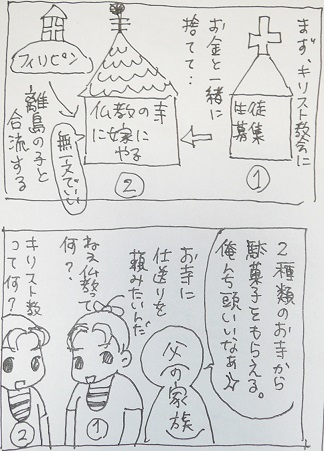 まず、キリスト教会に
お金と一緒に
捨てて…
生徒
募集
①
仏教の寺
に嫁に
やる
②
フィリピン
離島の子と
合流する
無一文でいい
2種類のお寺から
駄菓子をもらえる。
俺んち頭いいなぁ☆
父の家族
お寺に
仕送りを
頼みたいんだ
ねぇ仏教って
何？
①
キリスト教
って何？
②